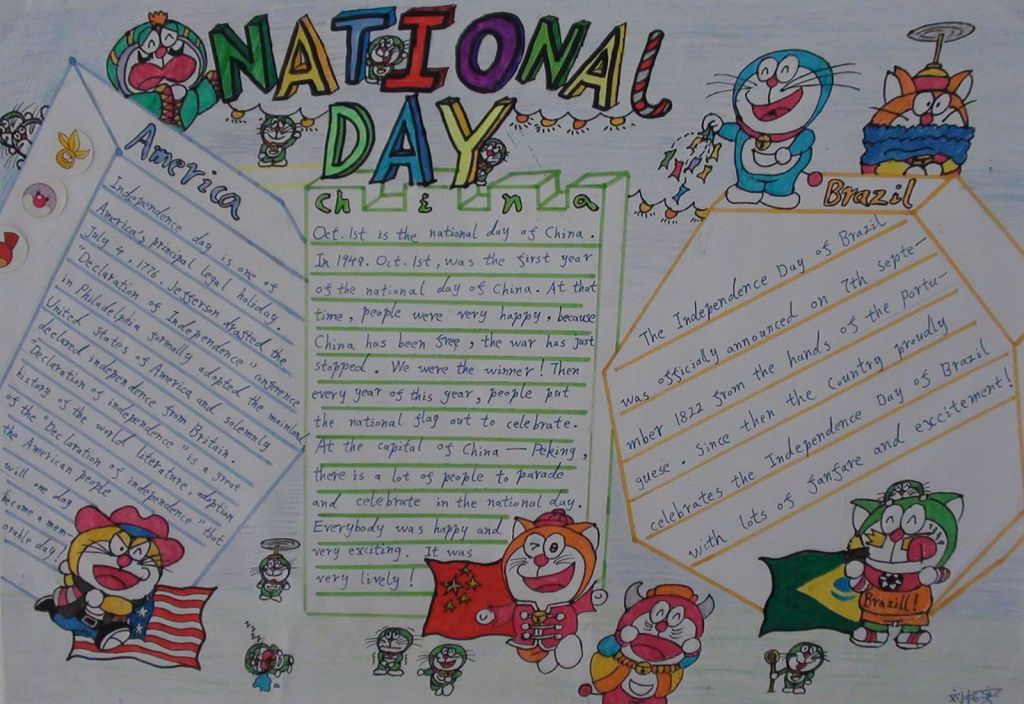 NATIONAL
DAY
America
Independence day is one of
America's principal legal holiday.
July 4, 1776. Jefferson drafted the
"Declaration of Independence" conference
in Philadelphia formally adopted the mainland
United States of America and solemnly
declared independence from Britain.
"Declaration of independence" is a great
history of the world literature, adoption
of the "Declaration of independence" that
the American people
will one day
become a mem-
orable day!
China
Oct. 1st is the national day of China.
In 1949. Oct. 1st, was the first year
of the national day of China. At that
time, people were very happy, because
China has been free, the war has just
stopped. We were the winner! Then
every year of this year, people put
the national flag out to celebrate.
At the capital of China — Peking,
there is a lot of people to parade
and celebrate in the national day.
Everybody was happy and
very exciting. It was
very lively!
Brazil
The Independence Day of Brazil
was officially announced on 7th Septe-
mber 1822 from the hands of the Portu-
guese. Since then the Country proudly
celebrates the Independence Day of Brazil
with lots of fanfare and excitement!
Brazill!